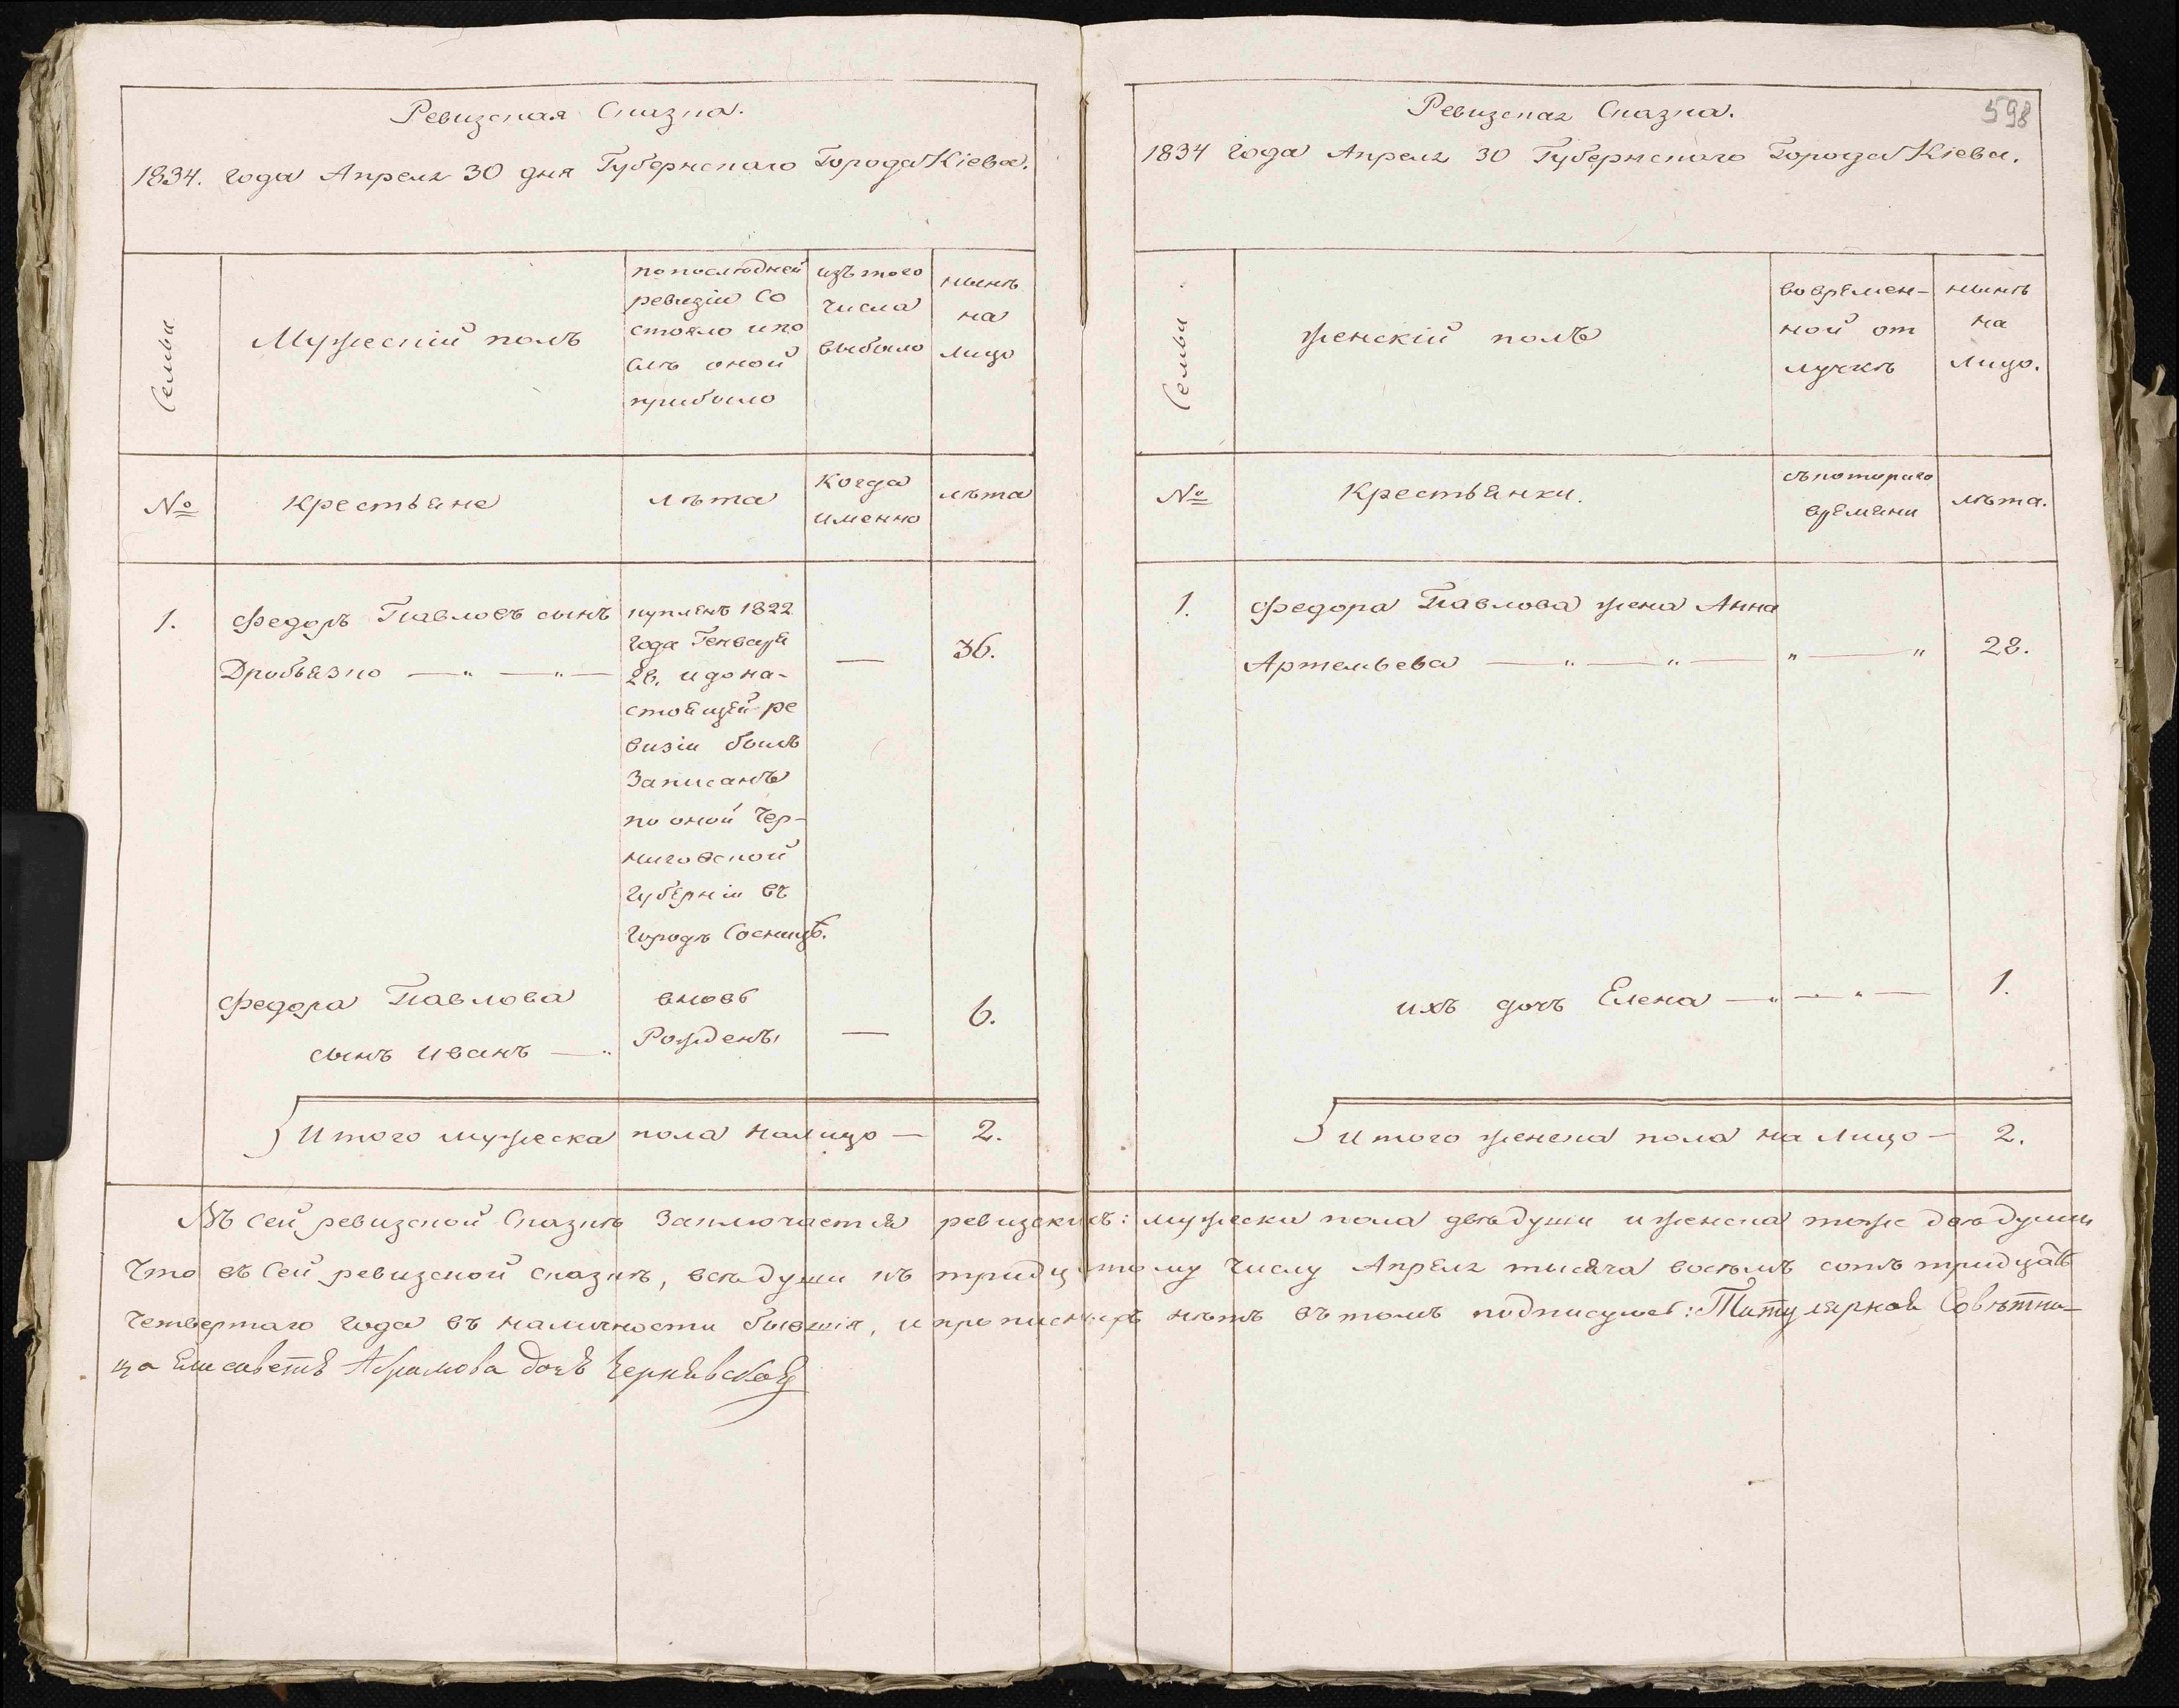 Ревизская Сказка.
1834. года Апреля 30 дня Губернскаго Города Кіева.
Семьи
Мужескій полъ
по последней
ревизіи Со
стояло и по
слѣ оной
прибыло
изъ того
числа
выбыло
нынѣ
на
лицо
№
Крестьяне
лѣта
Когда
именно
лѣта
1.
Федоръ Павловъ сынъ
Дробьязко — „ — „ —
купленъ 1822
года Генваря
28. и до на-
стоящей ре
визіи былъ
Записанъ
по оной Чер-
ниговской
Губерніи въ
городѣ Сосницѣ.
—
36.
Федора Павлова
сынъ Иванъ — „
вновь
Рожденъ
—
6.
Итого мужеска пола налицо — 2.
598
Ревизская Сказка.
1834 года Апреля 30 Губернскаго Города Кіева.
Семьи
Женскій полъ
во времен-
ной от
лучкѣ
нынѣ
на
лицо.
№
Крестьянки.
съ котораго
времяни
лѣта.
1.
Федора Павлова жена Анна
Артемьева — „ — „ — „ — „ 28.
ихъ дочь Елена — „ — „ — 1.
Итого женска пола на лицо — 2.
Въ сей ревизской Сказкѣ Заключается ревизскихъ: мужеска пола двѣ души и женска тоже двѣ души
Что въ Сей ревизской сказкѣ, всѣ души къ тридцатому числу Апреля тысяча восемь сотъ тридцать
Четвертаго года въ наличности бывшія, и прописныхъ нѣтъ въ томъ подписуюсь: Титулярная Совѣтни-
ца Елисаветъ Абрамова дочь Чернявская